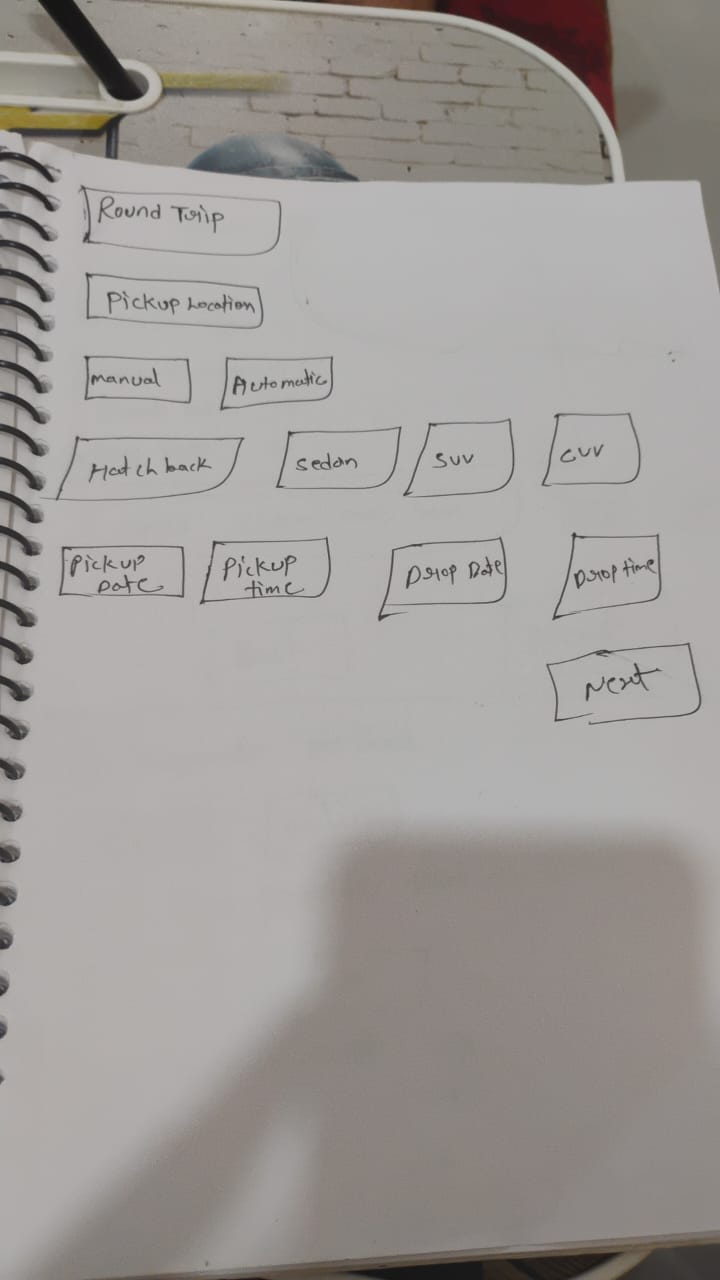 Round Trip
Pickup Location
manual Automatic
Hatchback sedan SUV CUV
Pickup Date Pickup time Drop Date Drop time
Next